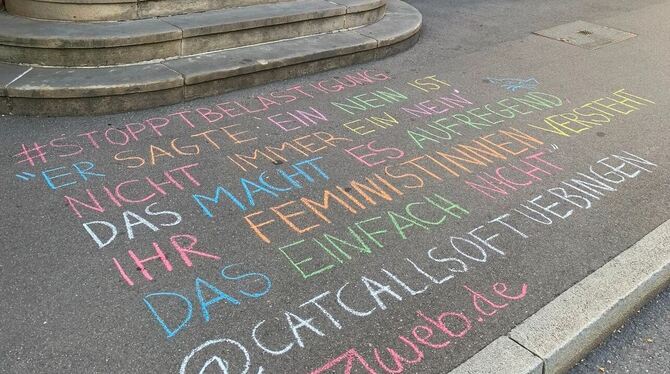 #STOPPTBELÄSTIGUNG
"ER SAGTE EIN NEIN IST
NICHT IMMER EIN NEIN"
DAS MACHT ES AUFREGEND,
IHR FEMINISTINNEN VERSTEHT
DAS EINFACH NICHT"
@CATCALLSOFTUEBINGEN
web.de